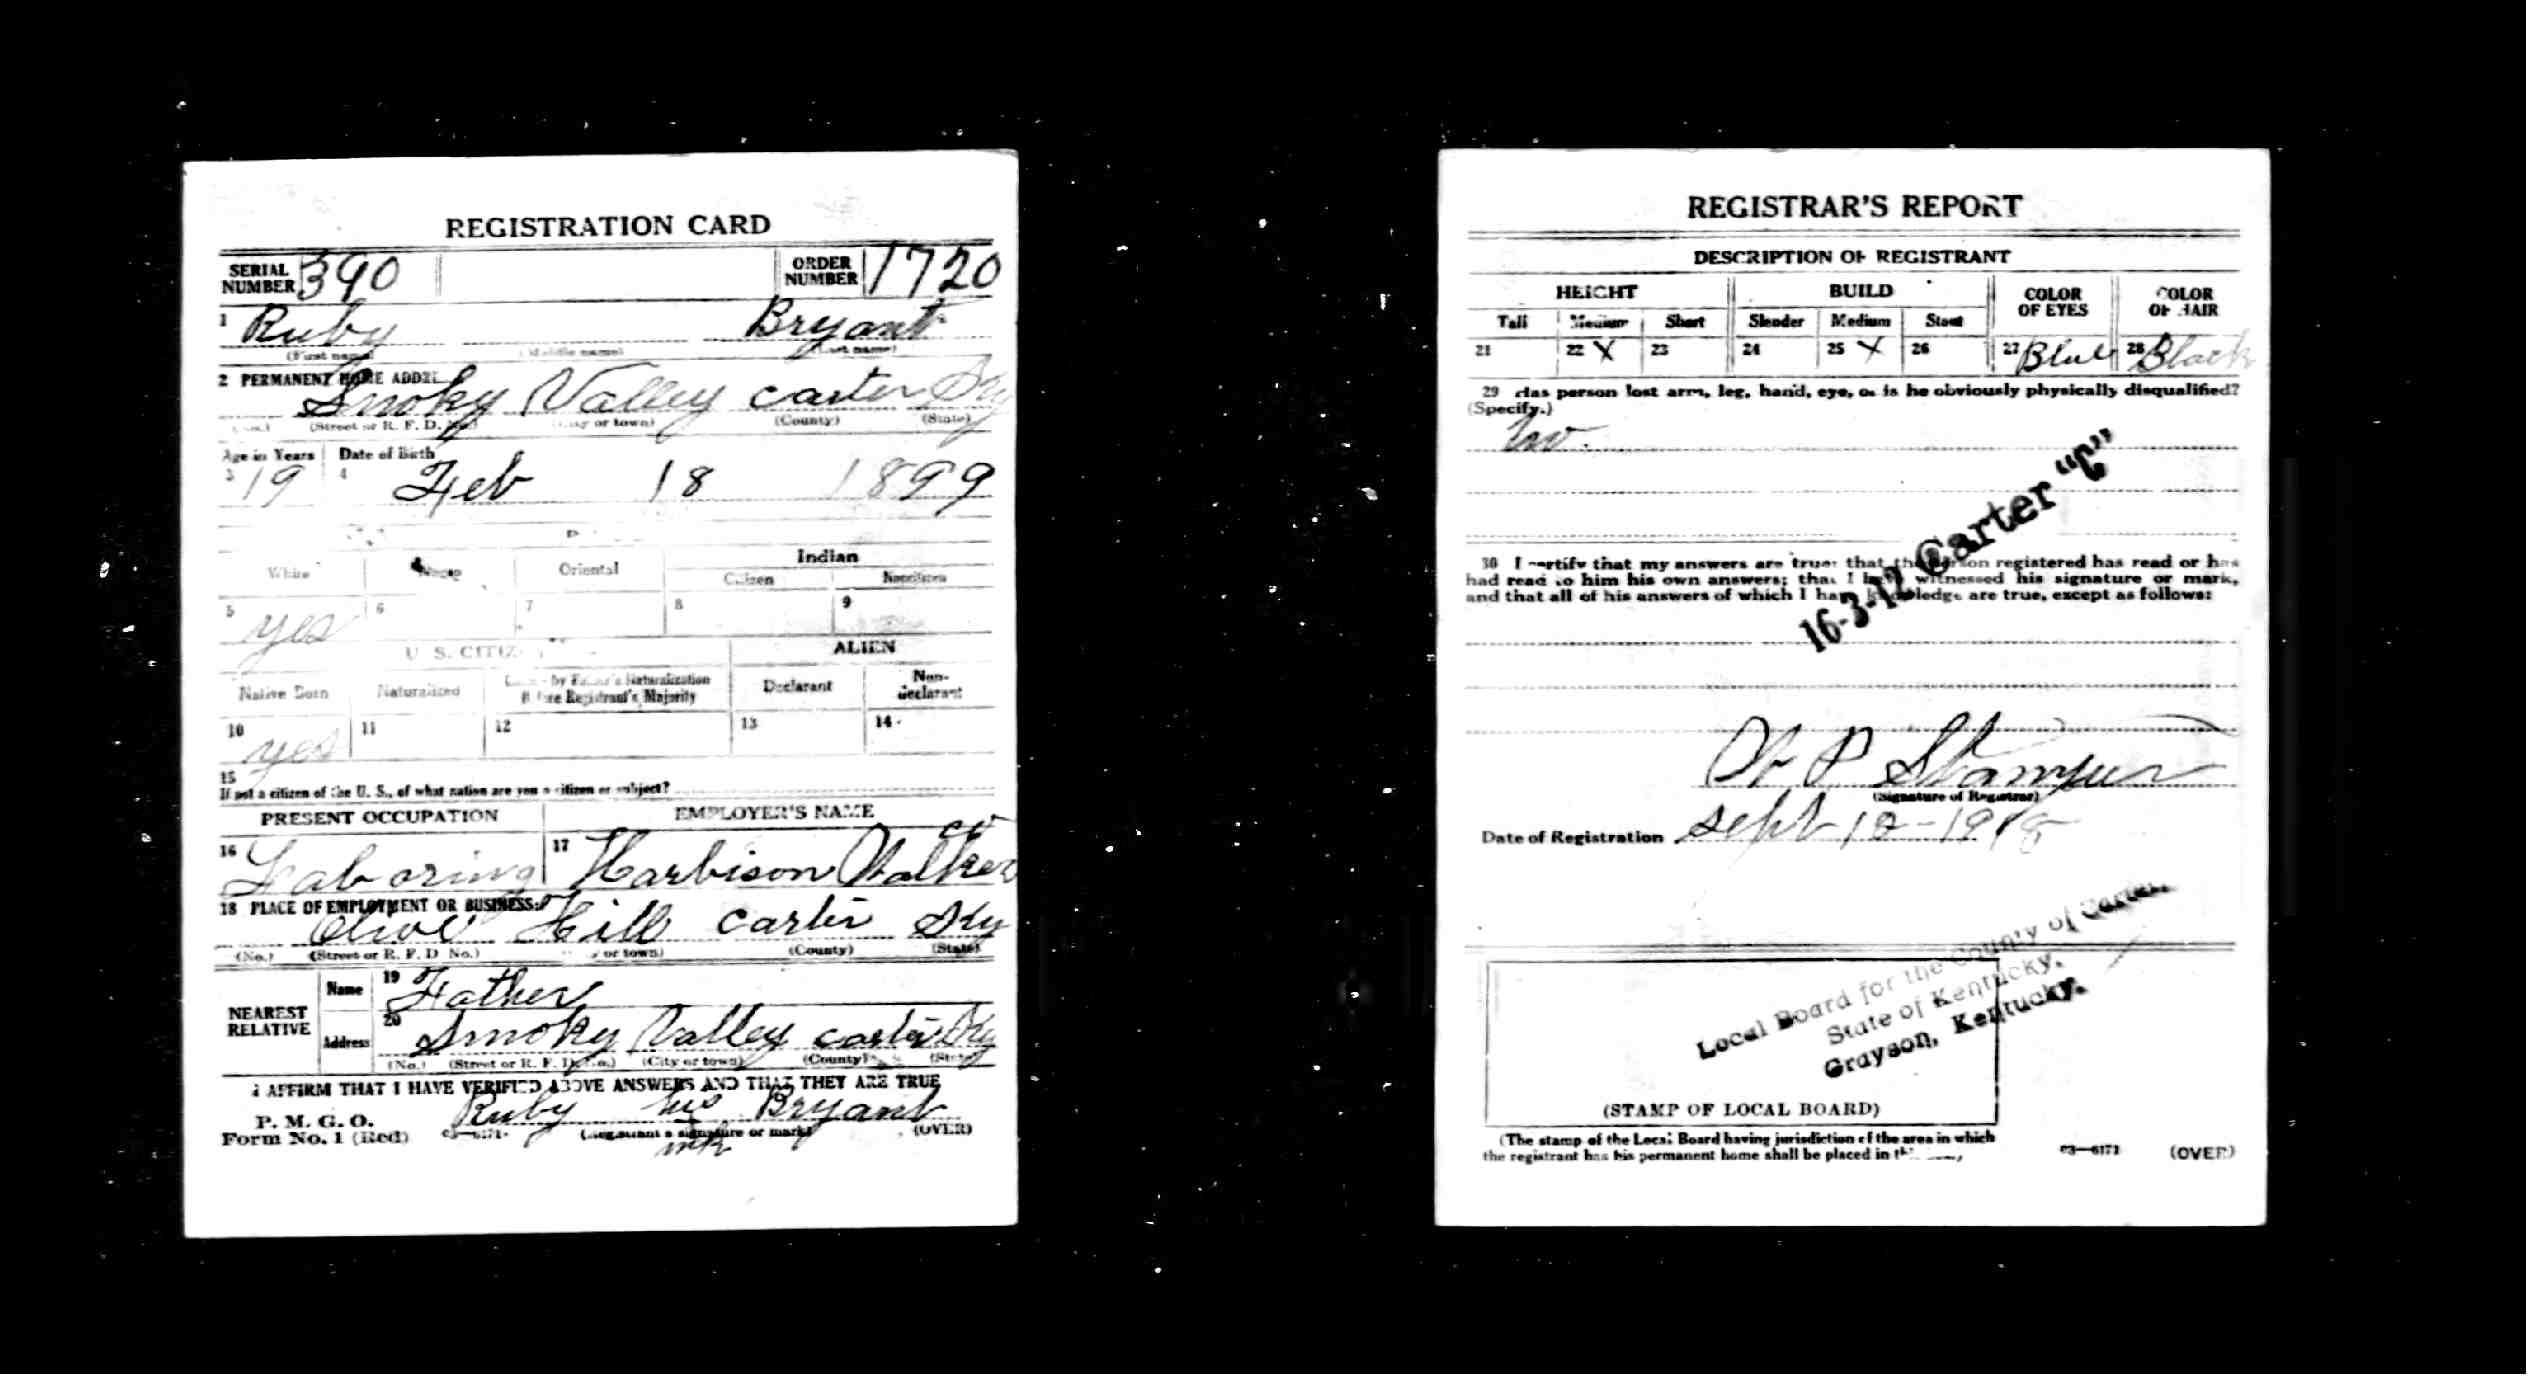 REGISTRATION CARD
SERIAL NUMBER 390 ORDER NUMBER 1720
1 Ruby Bryant
(First name) (Middle name) (Last name)
2 PERMANENT HOME ADDRE
Smoky Valley Carter Ky
(No.) (Street or R. F. D. No.) (City or town) (County) (State)
Age in Years Date of Birth
3 19 4 Feb 18 1899
Indian
White Negro Oriental Citizen Noncitizen
5 yes 6 7 8 9
U. S. CITIZ ALIEN
Native Born Naturalized by Father's Naturalization Before Registrant's Majority Declarant Non-declarant
10 yes 11 12 13 14
15
If not a citizen of the U. S., of what nation are you a citizen or subject?
PRESENT OCCUPATION EMPLOYER'S NAME
16 Laboring 17 Harbison Walker
18 PLACE OF EMPLOYMENT OR BUSINESS:
Olive Hill Carter Ky
(No.) (Street or R. F. D No.) or town) (County) (State)
NEAREST RELATIVE
Name 19 Father
Address 20 Smoky Valley Carter Ky
(No.) (Street or R. F. D. No.) (City or town) (County) (State)
I AFFIRM THAT I HAVE VERIFIED ABOVE ANSWERS AND THAT THEY ARE TRUE
P. M. G. O.
Form No. 1 (Red) 03—6171 Ruby his Bryant
(Registrant's signature or mark) (OVER)
mk
REGISTRAR'S REPORT
DESCRIPTION OF REGISTRANT
HEIGHT BUILD COLOR OF EYES COLOR OF HAIR
Tall Medium Short Slender Medium Stout
21 22 X 23 24 25 X 26 27 Blue 28 Black
29 Has person lost arm, leg, hand, eye, or is he obviously physically disqualified?
(Specify.)
No.
30 I certify that my answers are true; that the person registered has read or has
had read to him his own answers; that I have witnessed his signature or mark,
and that all of his answers of which I have knowledge are true, except as follows:
16-3-12 Carter "C"
Stamper
(Signature of Registrar)
Date of Registration Sept 12-1918
Local Board for the County of Carter,
State of Kentucky.
Grayson, Kentucky.
(STAMP OF LOCAL BOARD)
(The stamp of the Local Board having jurisdiction of the area in which
the registrant has his permanent home shall be placed in
03—6171 (OVER)